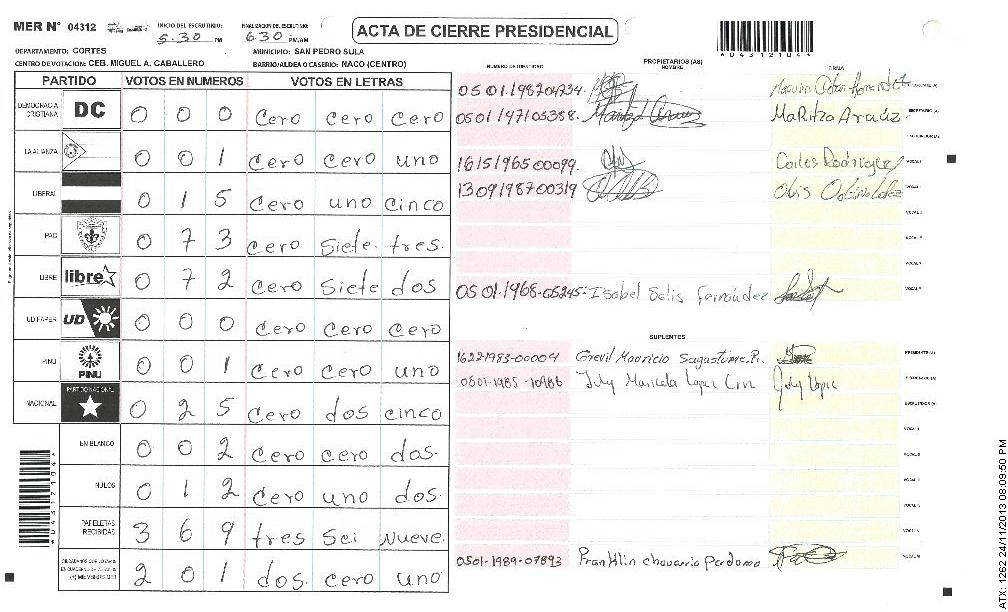 MER N° 04312 INICIO DEL ESCRUTINIO: 5:30 PM FINALIZACION DEL ESCRUTINIO: 6:30 PM/AM
ACTA DE CIERRE PRESIDENCIAL
*04312104*
DEPARTAMENTO: CORTES MUNICIPIO: SAN PEDRO SULA
CENTRO DE VOTACION: CEB. MIGUEL A. CABALLERO BARRIO/ALDEA O CASERIO: NACO (CENTRO)
PARTIDO VOTOS EN NUMEROS VOTOS EN LETRAS
DEMOCRACIA CRISTIANA DC 0 0 0 Cero Cero Cero
LA ALIANZA 0 0 1 Cero Cero uno
LIBERAL 0 1 5 Cero uno cinco
PAC 0 7 3 Cero Siete tres.
LIBRE libre 0 7 2 Cero Siete dos
UD FAPER UD 0 0 0 Cero Cero Cero
PINU PINU 0 0 1 Cero Cero uno
NACIONAL PARTIDO NACIONAL 0 2 5 Cero dos cinco
EN BLANCO 0 0 2 Cero cero dos.
NULOS 0 1 2 Cero uno dos.
PAPELETAS RECIBIDAS 3 6 9 tres Sei Nueve.
2 0 1 dos. cero uno
(+) MIEMBROS MER
*04312104*
NUMERO DE IDENTIDAD PROPIETARIOS (AS) NOMBRE FIRMA
0501.198204734. PRESIDENTE (A)
0501197105358. MaRitza Araúz. SECRETARIO (A)
ESCRUTADOR (A)
1615196500099. Carlos Rodriguez VOCAL I
1309198700319 VOCAL II
0501.1968-05245. Isabel Solis Fernández
SUPLENTES
1622-1983-00004 Grevil Mauricio Sagastume P. PRESIDENTE (A)
0501-1985-10986 July Maricela Lopez July Lopez SECRETARIO (A)
ESCRUTADOR (A)
VOCAL I
VOCAL II
0501-1989-07893 Franklin chavarria Perdomo
ATX: 1262 24/11/2013 08:09:50 PM